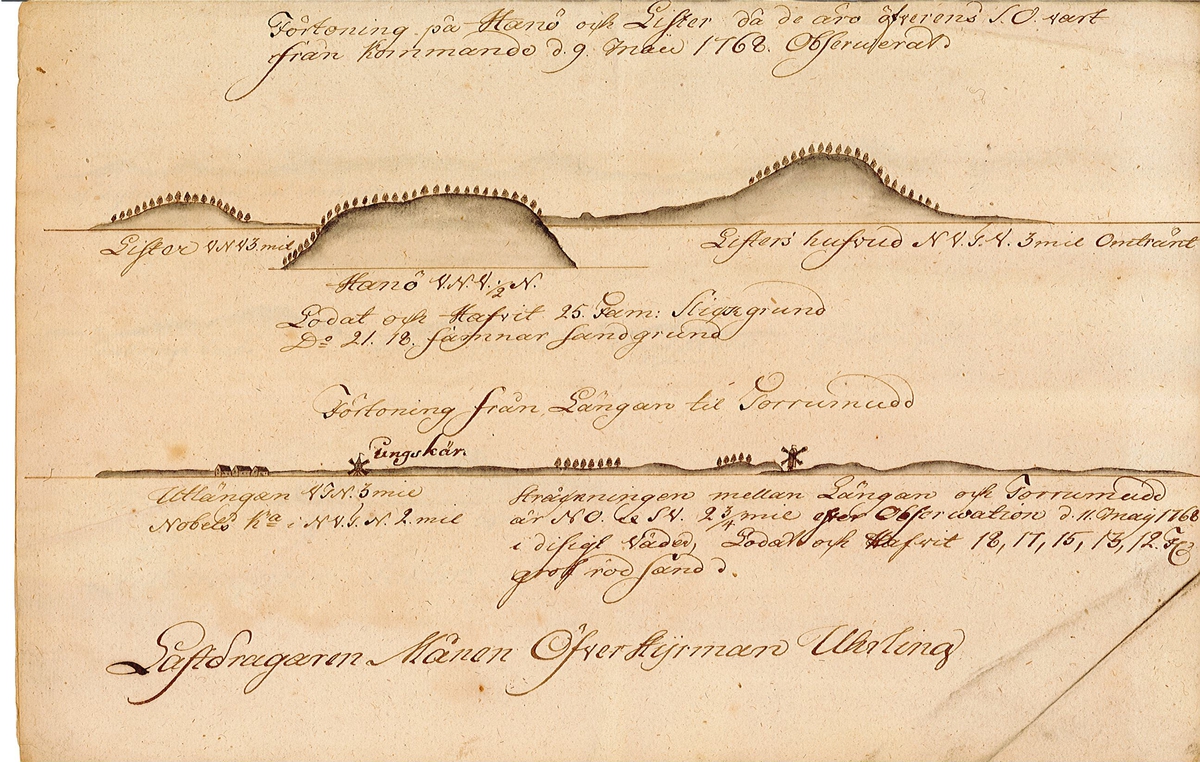 Förtoning på Hanö och Lister då de äro öfverens S.O. vart
från kommande d. 9. Maii 1768. Observerat
Lister V.N.V 3 mil
Listers hufvud N.V.t.V. 3 mil Omtränt
Hanö V.N.V. ½ N.
Lodat och Hafvit 25. Fam: Stigegrund
Do 21. 18. famnar sandgrund
Förtoning från Längan til Torrumudd
Ungskär
Utlängan V.t.N. 3 mil
Nobelö Ka i N.V.t.N. 2. mil
Sträckningen mellan Längan och Torrumudd
är N.O. & S.V. 2¾ mil efter Observation d. 11. Maij 1768
i disigt Väder, Lodat och Hafvit 18, 17, 15, 13, 12. F
grof röd sand
Lastdragaren Månen Öfverstyrman Uhrling